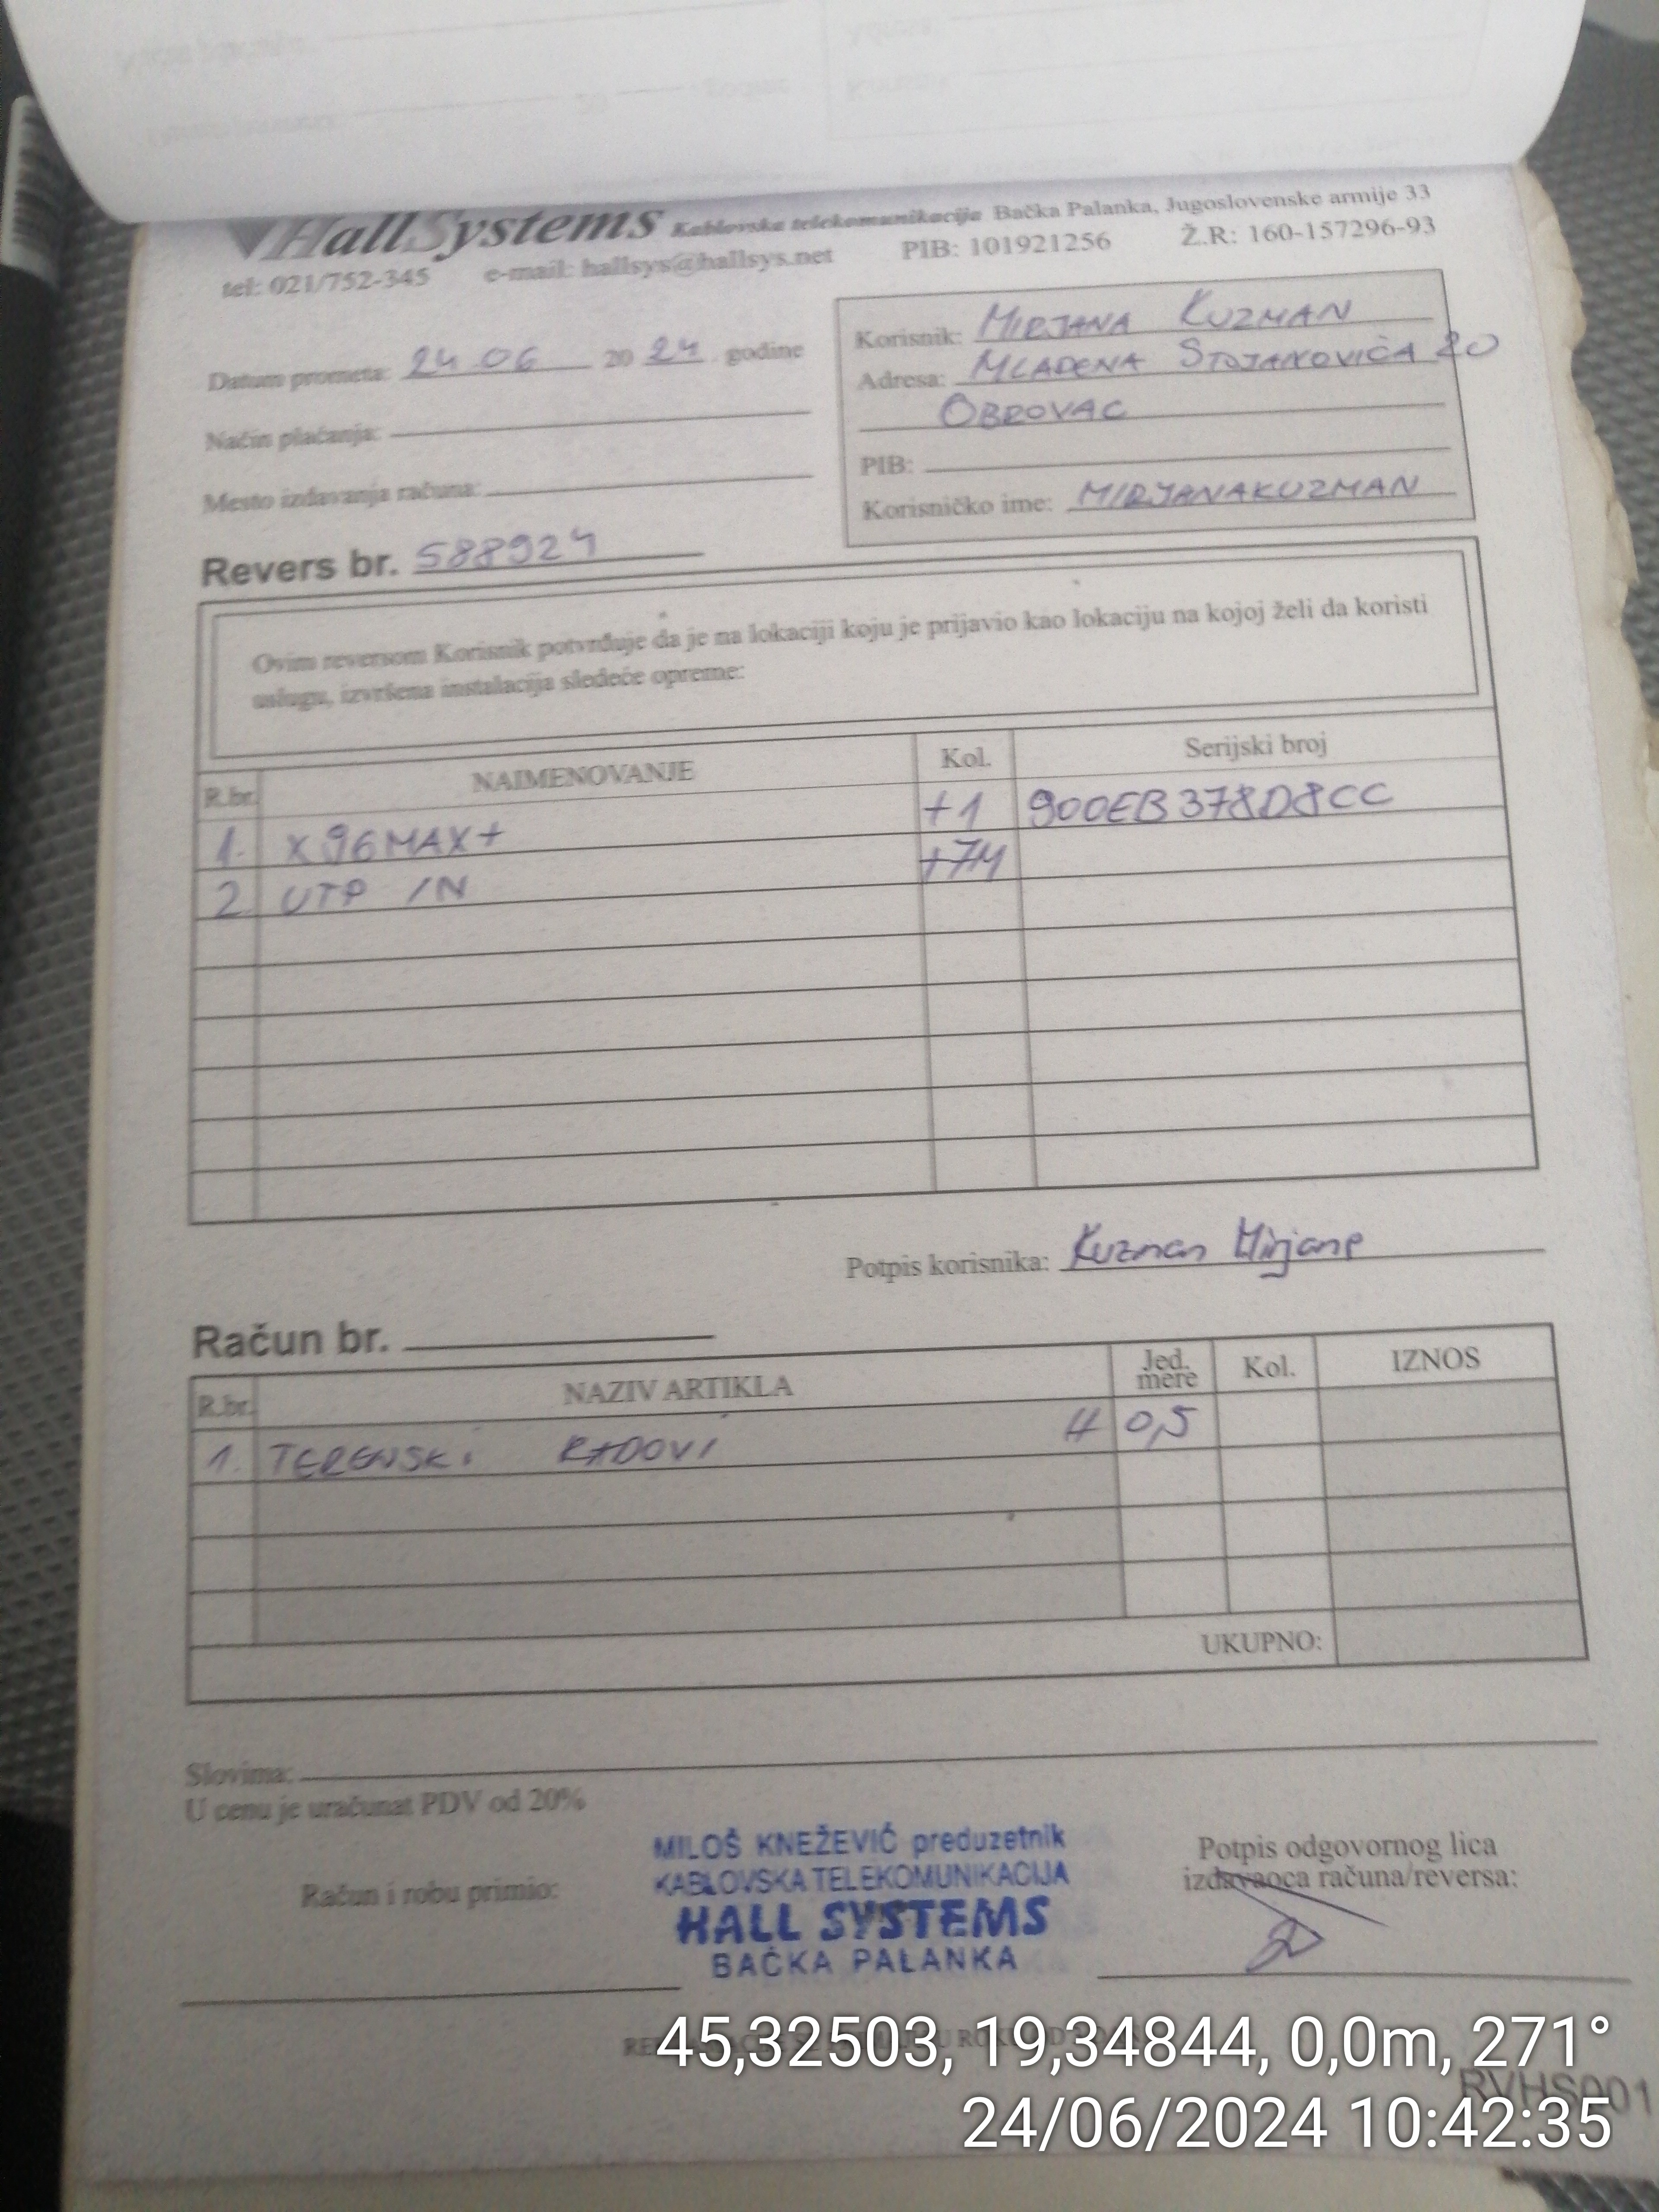 HallSystems Kablovska telekomunikacija Bačka Palanka, Jugoslovenske armije 33
tel: 021/752-345 e-mail: hallsys@hallsys.net PIB: 101921256 Ž.R: 160-157296-93
Datum prometa: 24 06 20 24 godine
Način plaćanja:
Mesto izdavanja računa:
Korisnik: MIRJANA KUZMAN
Adresa: MLADENA STOJANOVIĆA 20
OBROVAC
PIB:
Korisničko ime: MIRJANAKUZMAN
Revers br. 588924
Ovim reversom Korisnik potvrđuje da je na lokaciji koju je prijavio kao lokaciju na kojoj želi da koristi
uslugu, izvršena instalacija sledeće opreme:
R.br. NAIMENOVANJE Kol. Serijski broj
1. X96MAX+ +1 900EB378D8CC
2 UTP IN +7M
Potpis korisnika: Kuzman Mirjana
Račun br.
R.br. NAZIV ARTIKLA Jed. mere Kol. IZNOS
1. TERENSKi RADOVI H 0,5
UKUPNO:
Slovima:
U cenu je uračunat PDV od 20%
Račun i robu primio:
MILOŠ KNEŽEVIĆ preduzetnik
KABLOVSKA TELEKOMUNIKACIJA
HALL SYSTEMS
BAČKA PALANKA
Potpis odgovornog lica
izdavaoca računa/reversa:
45,32503, 19,34844, 0,0m, 271°
RVHS001
24/06/2024 10:42:35